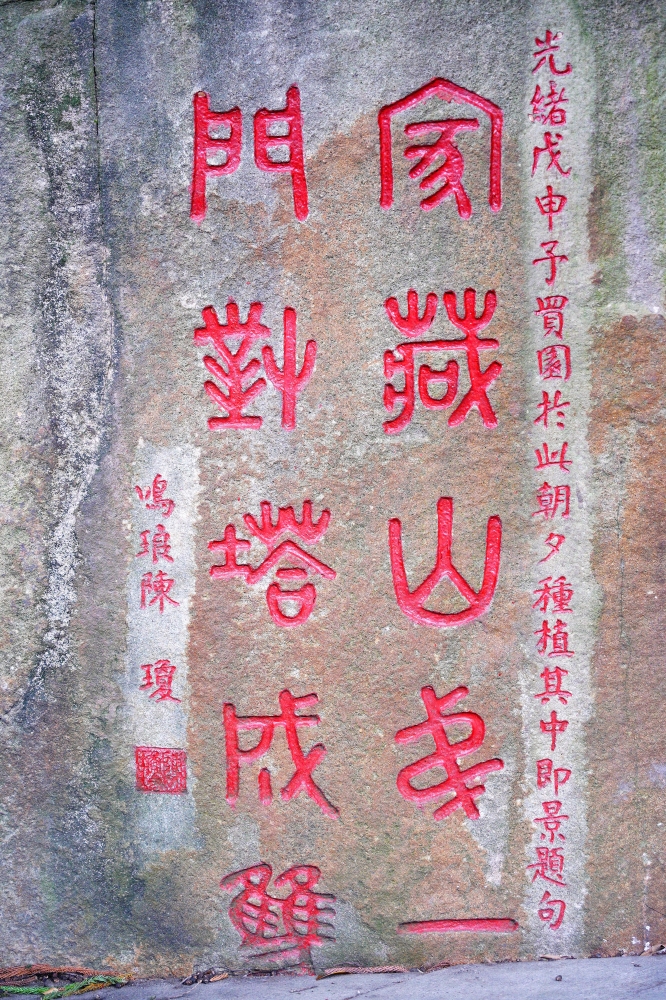 光緒戊申予買園於此朝夕種植其中即景題句
家藏山弟一
門對塔成雙
鳴琅陳瓊